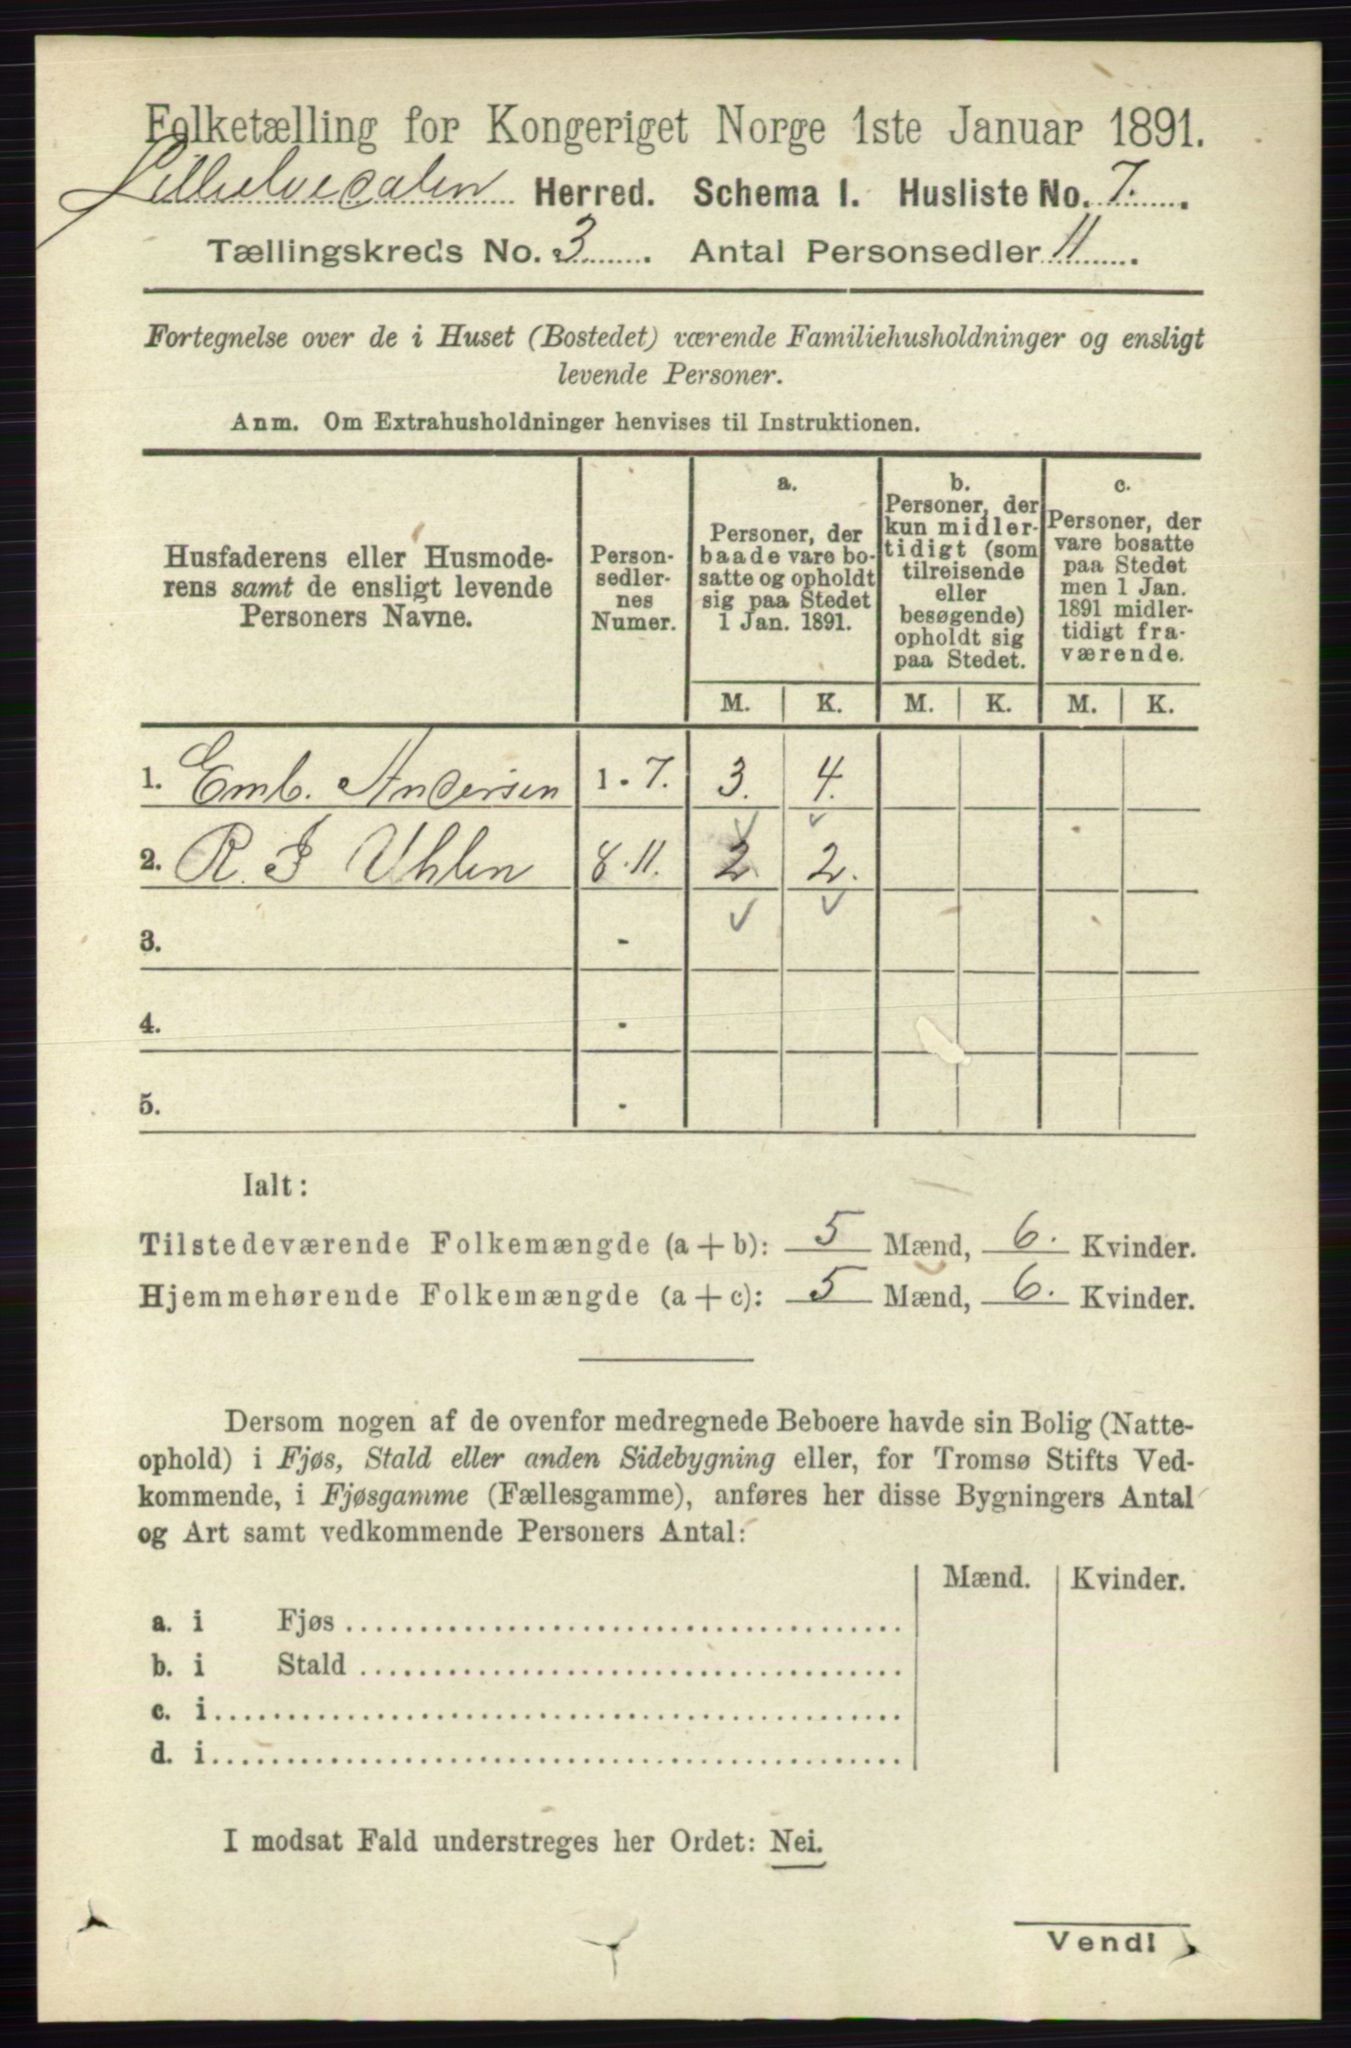 Folketælling for Kongeriget Norge 1ste Januar 1891.
Lilleelvedalen Herred. Schema I. Husliste No. 7.
Tællingskreds No. 3. Antal Personsedler 11.
Fortegnelse over de i Huset (Bostedet) værende Familiehusholdninger og ensligt
levende Personer.
Anm. Om Extrahusholdninger henvises til Instruktionen.
Husfaderens eller Husmode-
rens samt de ensligt levende
Personers Navne.
Person-
sedler-
nes
Numer.
a.
Personer, der
baade vare bo-
satte og opholdt
sig paa Stedet
1 Jan. 1891.
b.
Personer, der
kun midler-
tidigt (som
tilreisende
eller
besøgende)
opholdt sig
paa Stedet.
c.
Personer, der
vare bosatte
paa Stedet
men 1 Jan.
1891 midler-
tidigt fra-
værende.
M. K. M. K. M. K.
1. Emb. Andersen 1 - 7. 3. 4.
2. R. J Uhlen 8 - 11. 2 2.
3. -
4. -
5. -
Ialt:
Tilstedeværende Folkemængde (a + b): 5 Mænd, 6. Kvinder.
Hjemmehørende Folkemængde (a + c): 5 Mænd, 6. Kvinder.
Dersom nogen af de ovenfor medregnede Beboere havde sin Bolig (Natte-
ophold) i Fjøs, Stald eller anden Sidebygning eller, for Tromsø Stifts Ved-
kommende, i Fjøsgamme (Fællesgamme), anføres her disse Bygningers Antal
og Art samt vedkommende Personers Antal:
Mænd. Kvinder.
a. i Fjøs
b. i Stald
c. i
d. i
I modsat Fald understreges her Ordet: Nei.
Vend!